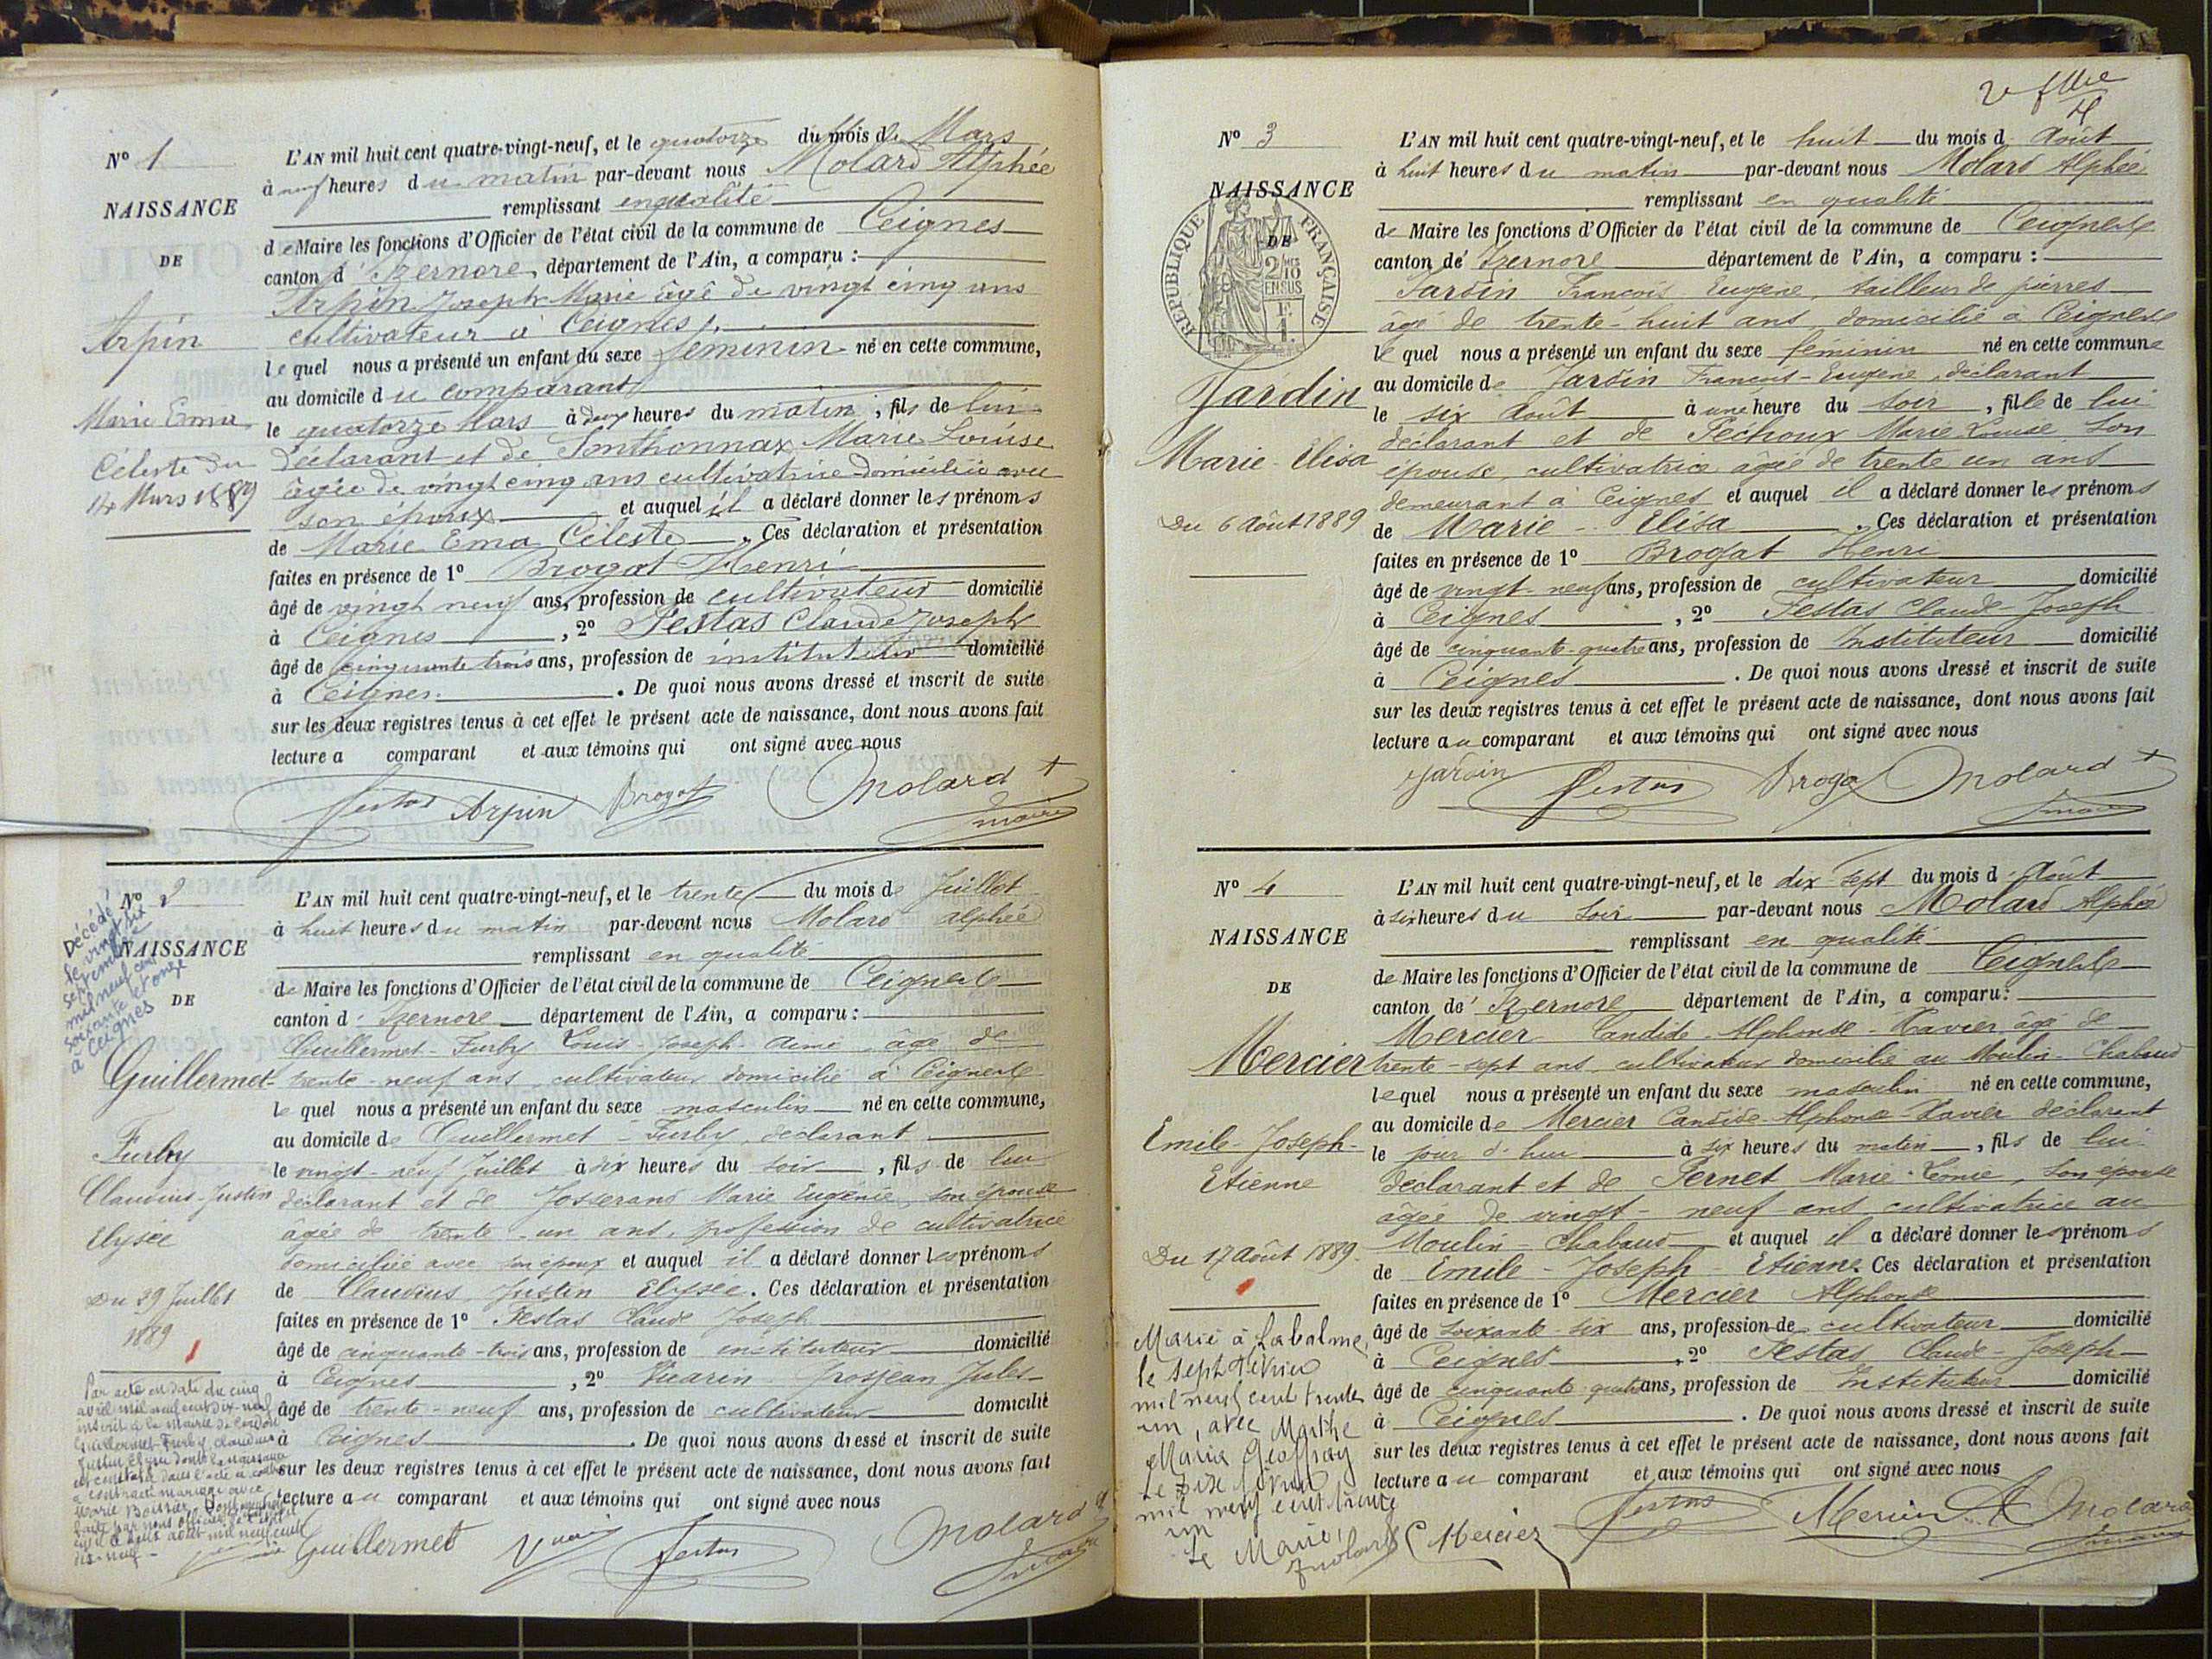 N° 1
NAISSANCE
DE
Arpin
Marie Ema
Céleste du
14 Mars 1889
L'AN mil huit cent quatre-vingt-neuf, et le quatorze du mois de Mars
à neuf heures du matin par-devant nous Molard Alphée
remplissant en qualité
de Maire les fonctions d'Officier de l'état civil de la commune de Ceignes
canton d'Izernore, département de l'Ain, a comparu :
Arpin Joseph Marie âgé de vingt cinq ans
cultivateur à Ceignes
lequel nous a présenté un enfant du sexe féminin né en cette commune,
au domicile du comparant
le quatorze Mars à deux heures du matin, fils de lui
déclarant et de Sonthonnax Marie Louise
âgée de vingt cinq ans cultivatrice domiciliée avec
son époux et auquel il a déclaré donner les prénoms
de Marie Ema Céleste. Ces déclaration et présentation
faites en présence de 1° Brogat Henri
âgé de vingt neuf ans, profession de cultivateur domicilié
à Ceignes, 2° Festas Claude Joseph
âgé de cinquante trois ans, profession de instituteur domicilié
à Ceignes. De quoi nous avons dressé et inscrit de suite
sur les deux registres tenus à cet effet le présent acte de naissance, dont nous avons fait
lecture a comparant et aux témoins qui ont signé avec nous
Festas Arpin Brogat Molard
maire
N° 2
Décédé
le vingt six
septembre
mil neuf cent
soixante et onze
à Ceignes
NAISSANCE
DE
Guillermet-
Furby
Claudius-Justin
Elysée
Du 29 Juillet
1889
L'AN mil huit cent quatre-vingt-neuf, et le trente du mois de Juillet
à huit heures du matin par-devant nous Molard Alphée
remplissant en qualité
de Maire les fonctions d'Officier de l'état civil de la commune de Ceignes
canton d'Izernore département de l'Ain, a comparu :
Guillermet-Furby Louis-Joseph Aimé, âgé de
trente-neuf ans, cultivateur domicilié à Ceignes
lequel nous a présenté un enfant du sexe masculin né en cette commune,
au domicile de Guillermet-Furby, déclarant
le vingt-neuf Juillet à dix heures du soir, fils de lui
déclarant et de Josserand Marie Eugénie, son épouse
âgée de trente-un ans, profession de cultivatrice
domiciliée avec son époux et auquel il a déclaré donner les prénoms
de Claudius Justin Elysée. Ces déclaration et présentation
faites en présence de 1° Festas Claude Joseph
âgé de cinquante-trois ans, profession de instituteur domicilié
à Ceignes, 2° Vuarin Grosjean Jules
âgé de trente-neuf ans, profession de cultivateur domicilié
à Ceignes. De quoi nous avons dressé et inscrit de suite
sur les deux registres tenus à cet effet le présent acte de naissance, dont nous avons fait
lecture au comparant et aux témoins qui ont signé avec nous
Guillermet Vuarin Festas Molard
maire
Par acte en date du cinq
avril mil neuf cent dix-neuf
inscrit à la mairie de
Guillermet-Furby Claudius
Justin Elysée dont la naissance
est constatée dans l'acte ci-contre
a contracté mariage avec
Marie
août mil neuf cent
dix-neuf
2e flle
N° 3
NAISSANCE
DE
REPUBLIQUE FRANÇAISE
2/10
EN SUS
Jardin
Marie-Elisa
Du 6 Août 1889
L'AN mil huit cent quatre-vingt-neuf, et le huit du mois d'Août
à huit heures du matin par-devant nous Molard Alphée
remplissant en qualité
de Maire les fonctions d'Officier de l'état civil de la commune de Ceignes
canton de' Izernore département de l'Ain, a comparu :
Jardin François Eugène, tailleur de pierres
âgé de trente-huit ans domicilié à Ceignes
lequel nous a présenté un enfant du sexe féminin né en cette commune
au domicile de Jardin François-Eugène, déclarant
le six Août à une heure du soir, fille de lui
déclarant et de Pechoux Marie Louise son
épouse, cultivatrice âgée de trente un ans
demeurant à Ceignes et auquel il a déclaré donner les prénoms
de Marie Elisa. Ces déclaration et présentation
faites en présence de 1° Brogat Henri
âgé de vingt-neuf ans, profession de cultivateur domicilié
à Ceignes, 2° Festas Claude-Joseph
âgé de cinquante-quatre ans, profession de Instituteur domicilié
à Ceignes. De quoi nous avons dressé et inscrit de suite
sur les deux registres tenus à cet effet le présent acte de naissance, dont nous avons fait
lecture au comparant et aux témoins qui ont signé avec nous
Jardin Festas Brogat Molard
N° 4
NAISSANCE
DE
Mercier
Emile-Joseph-
Etienne
Du 17 Août 1889.
L'AN mil huit cent quatre-vingt-neuf, et le dix-sept du mois d'Août
à six heures du soir par-devant nous Molard Alphée
remplissant en qualité
de Maire les fonctions d'Officier de l'état civil de la commune de Ceignes
canton de' Izernore département de l'Ain, a comparu :
Mercier Candide-Alphonse-Xavier, âgé de
trente-sept ans, cultivateur domicilié au Moulin-Chabaud
lequel nous a présenté un enfant du sexe masculin né en cette commune,
au domicile de Mercier Candide-Alphonse-Xavier déclarant
le jour d'hui à six heures du matin, fils de lui
déclarant et de Pernet Marie-Léonie, son épouse
âgée de vingt-neuf ans cultivatrice au
Moulin-Chabaud et auquel il a déclaré donner les prénoms
de Emile-Joseph-Etienne Ces déclaration et présentation
faites en présence de 1° Mercier Alphonse
âgé de soixante-six ans, profession de cultivateur domicilié
à Ceignes, 2° Festas Claude-Joseph
âgé de cinquante-quatre ans, profession de Instituteur domicilié
à Ceignes. De quoi nous avons dressé et inscrit de suite
sur les deux registres tenus à cet effet le présent acte de naissance, dont nous avons fait
lecture au comparant et aux témoins qui ont signé avec nous
C Mercier Festas Mercier A Molard
Marié à Labalme,
le sept février
mil neuf cent trente
un, avec Marthe
Maria Geoffray
Le dix février
mil neuf cent trente
un
Le Maire,
Molard